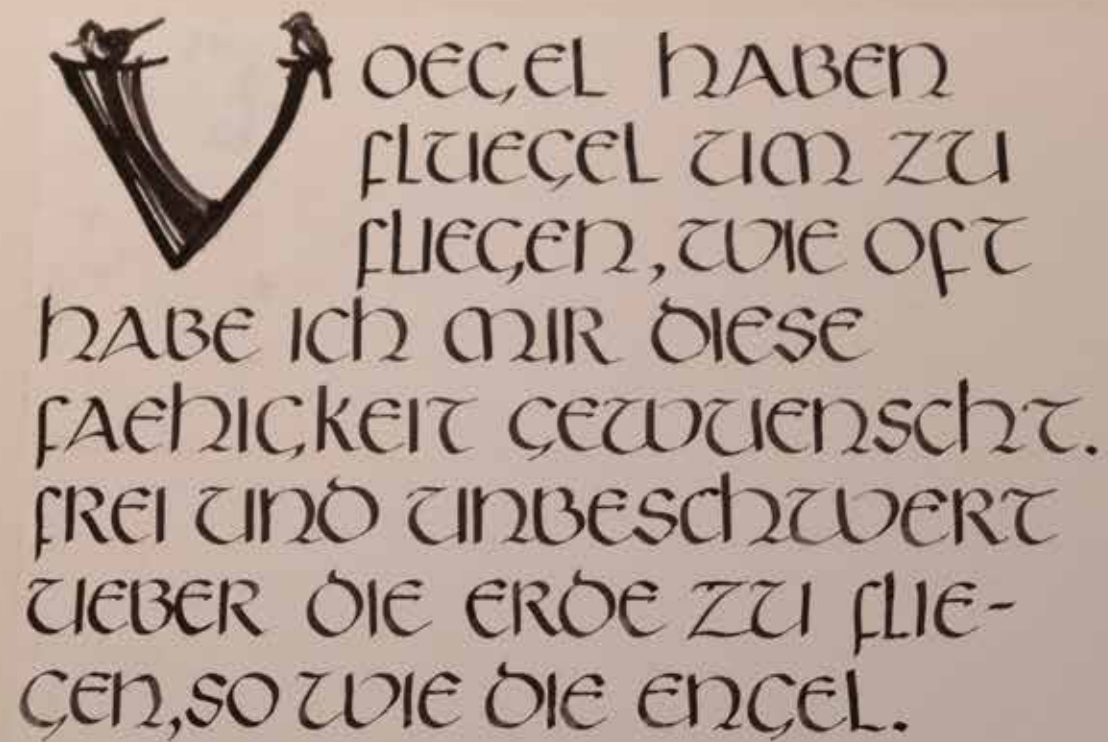 VOEGEL HABEN
FLUEGEL UM ZU
FLIEGEN, WIE OFT
HABE ICH MIR DIESE
FAEHIGKEIT GEWUENSCHT.
FREI UND UNBESCHWERT
UEBER DIE ERDE ZU FLIE-
GEN, SO WIE DIE ENGEL.